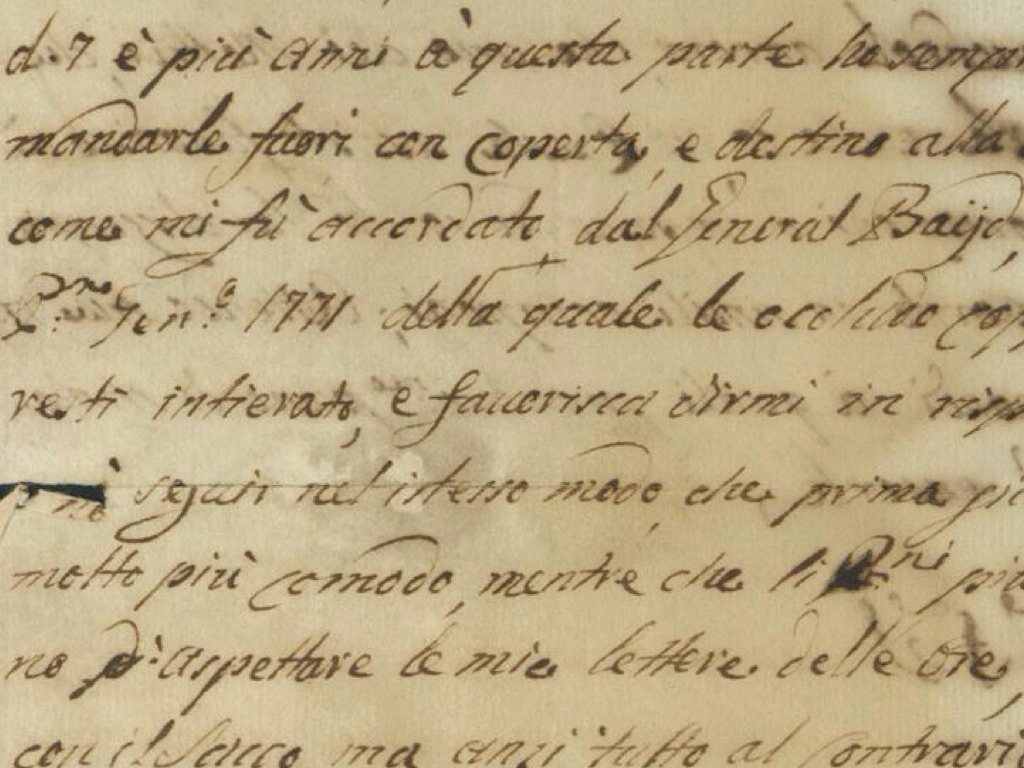 d. 7 è più anni à questa parte ho sempr
mandarle fuori con coperta, e destino alla
come mi fù accordato dal General Baijò,
P:mo Gen:o 1771 della quale le occludo cop
resti intierato, e favorisca dirmi in risp
nò seguir nel istesso modo, che prima gia
molto più comodo, mentre che li più
no di aspettare le mie lettere delle ore,
con il Sacco ma anzi tutto al contrario